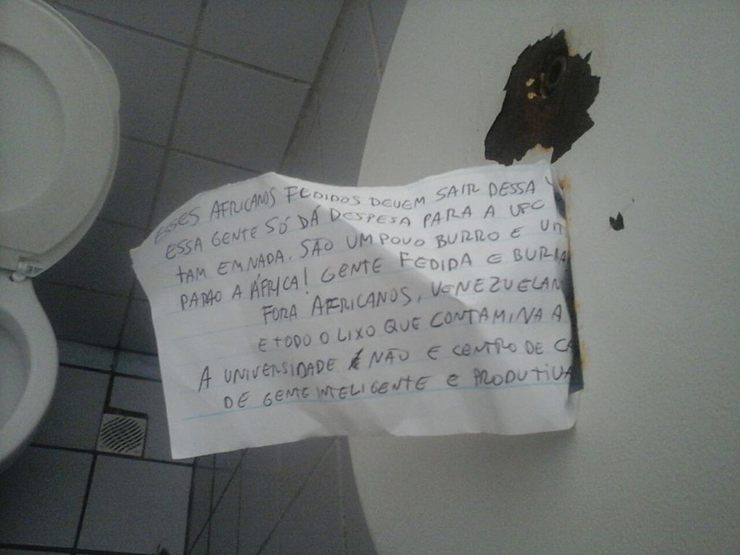 ESSES AFRICANOS FEDIDOS DEVEM SAIR DESSA
ESSA GENTE SÓ DÁ DESPESA PARA A UFC
TAM EM NADA. SÃO UM POVO BURRO E
A ÁFRICA! GENTE FEDIDA E BURRA
FORA AFRICANOS, VENEZUELAN
E TODO O LIXO QUE CONTAMINA A
A UNIVERSIDADE NÃO E CENTRO DE CA
DE GENTE INTELIGENTE E PRODUTIVA